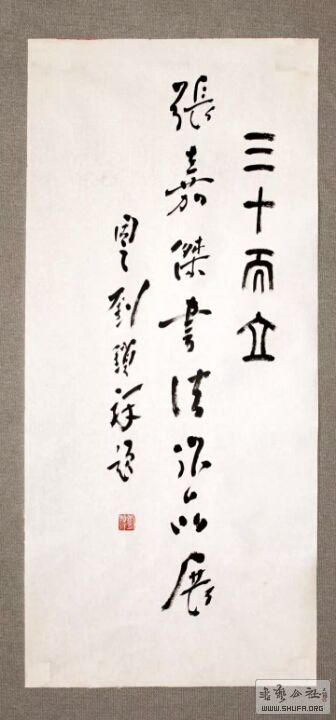 三十而立
張嘉傑書法作品展
劉鎖祥題
书艺公社
WWW.SHUFA.ORG